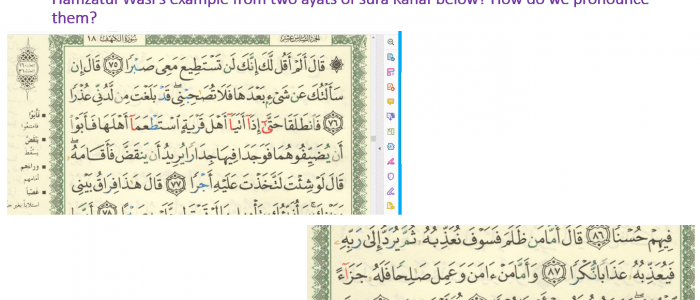 Hamzatul Wasl's example from two ayats of sura Kahaf below? How do we pronounce
them?
سُورَةُ الكَهْفِ ١٨
۞ قَالَ أَلَمْ أَقُل لَّكَ إِنَّكَ لَن تَسْتَطِيعَ مَعِىَ صَبْرًا ٧٥ قَالَ إِن
سَأَلْتُكَ عَن شَىْءٍۭ بَعْدَهَا فَلَا تُصَٰحِبْنِى ۖ قَدْ بَلَغْتَ مِن لَّدُنِّى عُذْرًا
٧٦ فَٱنطَلَقَا حَتَّىٰٓ إِذَآ أَتَيَآ أَهْلَ قَرْيَةٍ ٱسْتَطْعَمَآ أَهْلَهَا فَأَبَوْا۟
أَن يُضَيِّفُوهُمَا فَوَجَدَا فِيهَا جِدَارًا يُرِيدُ أَن يَنقَضَّ فَأَقَامَهُۥ ۖ
قَالَ لَوْ شِئْتَ لَتَّخَذْتَ عَلَيْهِ أَجْرًا ٧٧ قَالَ هَٰذَا فِرَاقُ بَيْنِى
فَأَبَوْا
فامتنعوا
يَنقَضَّ
يسقط
وراءهم
أمامهم
غصبا
فِيهِمْ حُسْنًا ٨٦ قَالَ أَمَّا مَن ظَلَمَ فَسَوْفَ نُعَذِّبُهُۥ ثُمَّ يُرَدُّ إِلَىٰ رَبِّهِۦ
فَيُعَذِّبُهُۥ عَذَابًا نُّكْرًا ٨٧ وَأَمَّا مَنْ ءَامَنَ وَعَمِلَ صَٰلِحًا فَلَهُۥ جَزَآءً